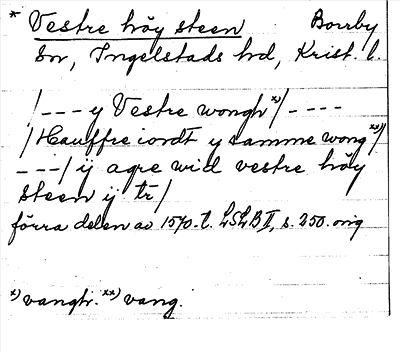 * Vestre höy steen Borrby
sn, Ingelstads hd, Krist. l.
/--- y Vestre wongh x)/ ----
/Hauffre iordt y samme wong xx)/
---/ ij agre wid vestre höy
steen ij tr/
förra delen av 1570-t. LSLB II, s. 250. orig
x) vangtr. xx) vang.